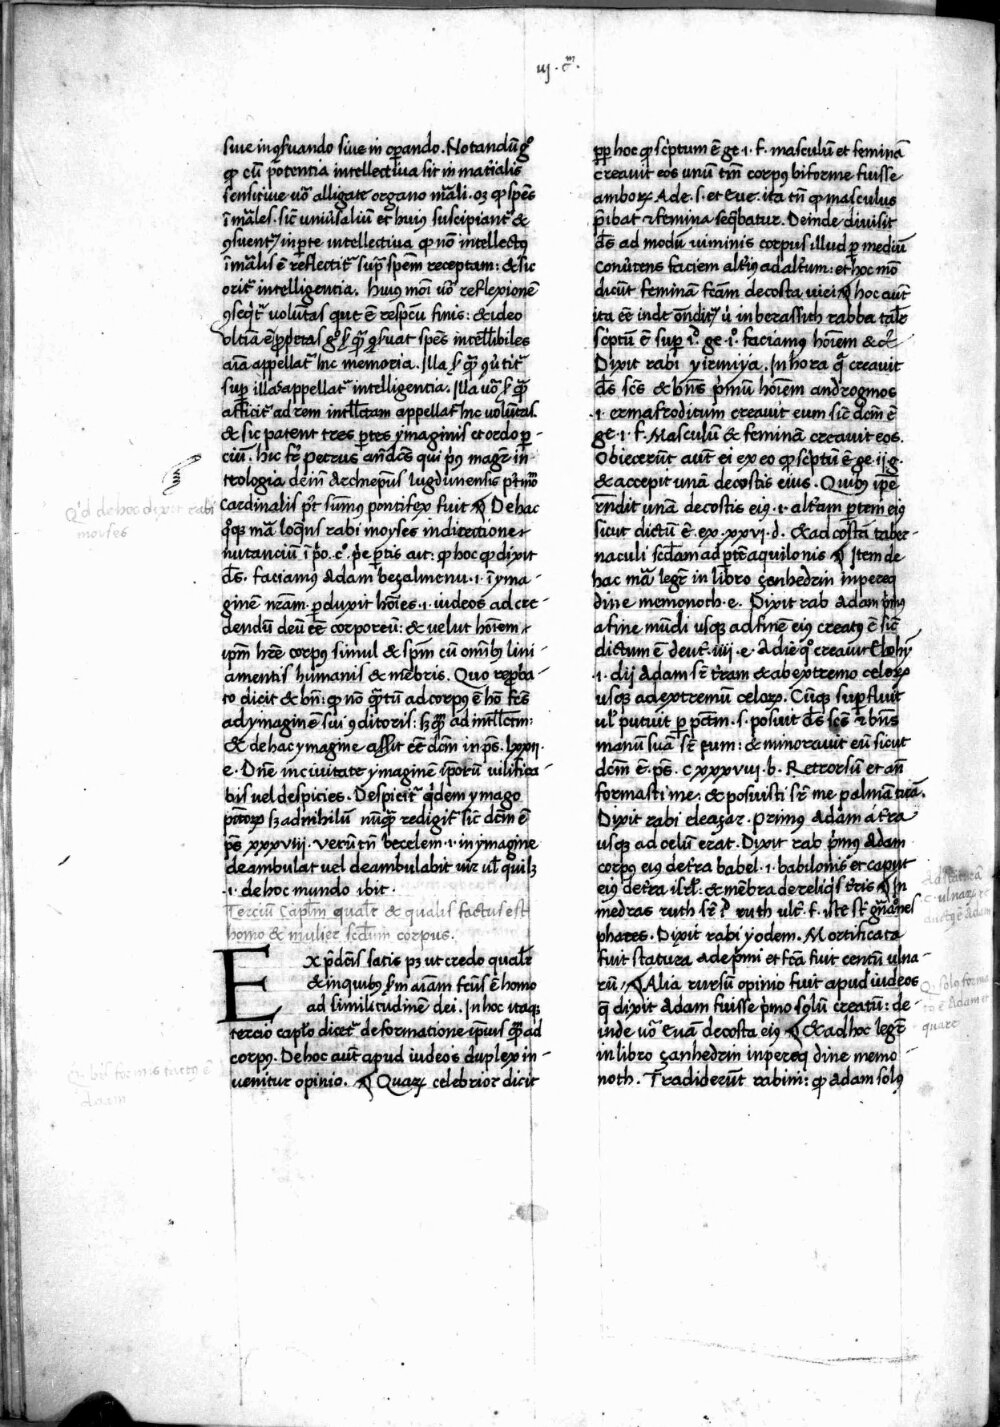 iij. cm.
sive in ꝯservando sive in oꝑando. Notandū gͦ
ꝙ cū potentia intellectiva sit īmaterialis
sensitive vō alligate organo māli. oꝫ ꝙ spēs
īmāles. sic universaliū et huius suscipiantr &
ꝯservent in ꝑte intellectiva ꝙ nō intellectus
īmālis ē reflectitr supra spēm receptam: & sic
oritr intelligentia. huius mōi vō reflexionem
ꝯseqtr voluntas que ē respectu finis: & ideo
appellatr hic memoria. Illa
suꝑ illas appellatr intelligentia. Illa vō
afficitr ad rem intellectam appellatr hic voluntas.
& sic patent tres ꝑtes ymaginis et ordo ꝑ-
ciū. hic fr petrus qui prius magr in
teologia demū Archiepus lugdunensis
Cardinalis post summus pontifex fuit ¶ De hac
quoqꝫ mā loquens rabi moyses in directione
nutanciū ī pº. cº. pe ꝑtis ait: ꝙ hoc ꝙ dixit
ds. faciamus Adam beçalmenu .i. īyma-
ginē nram. ꝑduxit hoīes .i. iudeos ad cre-
dendū deū eē corporeū: & velut hoīem
ipm hre corpus simul & spm cū omībus lini-
amentis humanis & mēbris. Quo reproba-
to dicit & bn: ꝙ nō quātū ad corpus ē hō fcus
ad ymaginē sui ꝯditoris: sꝫ quo ad intellctm:
& de hac ymagine assit eē dcm in ps. lxxii.
e. Dne in civitate ymaginē ipsorū vilifica
bis vel despicies. Despicitr qdem ymago
pctorꝝ sꝫ ad nihilū nūqua redigitr sic dcm ē
ps xxxviii. verūtn beçelem .i. in ymagine
deambulat vel deambulabit vir vl quilꝫ
.i. de hoc mundo ibit.
Terciū Caplm qualr & qualis factus est
homo & mulier scdum corpus.
Ex pdcis satis pꝫ ut credo qualr
& in quibus fm aīam fcus ē homo
ad similitudinē dei. In hoc itaqꝫ
tercio caplo dicetr de formatione ipsius quo ad
corpus. De hoc aut apud iudeos duplex in-
venitur opinio. ¶ Quarꝝ celebrior dicit
ꝓp hoc ꝙ scptum ē ge .i. f. masculū et feminā
creavit eos unū tm corpus biforme fuisse
amborꝝ Ade .s. et Eve. ita tn ꝙ masculus
pibat & femina seqbatur. Deinde divisit
ds ad modū viminis corpus illud ꝑ mediū
convertens faciem alterius ad alterum: et hoc mō
dicūt feminam fcam de costa viri ¶ hoc aut
ita eē inde onditr ut in berassith rabba tale
scptū ē sup iº. ge .iº. faciamus hoīem &c
Dixit rabi yirmiya. In hora qua creavit
ds scs & bns pmū hoīem androgmos
.i. ermafroditum creavit eum sic dcm ē
ge .i. f. Masculū & feminā creavit eos.
Obiecerūt aut ei ex eo ꝙ scptū ē ge .ii g.
& accepit unā de costis eius. Quibus ipe
rndit unā de costis eius .i. alteram ꝑtem eius
sicut dictū ē ex. xxvi. d. & ad costā taber-
naculi scdam ad ꝑte aquilonis ¶ Item de
hac mā legr in libro çanhedrin in pereq
dine memonoth .e. Dixit rab Adam pmus
a fine mūdi usqꝫ ad finē eius creatus ē sic
dictum ē deut. iiii .e. A die quo creavit Elohym
.i. dii Adam sr terram & ab extremo celorꝝ
usqꝫ ad extremū celorꝝ. Cūqꝫ superfluit
vl putuit ꝑ pctm .s. posuit ds scs & bns
manū suā sr eum: & minoravit eū sicut
dcm ē. ps. cxxxviii. b. Retrorsū et an
formasti me: & posuisti sr me palmam tuā.
Dixit rabi eleaçar. primus Adam a terra
usqꝫ ad celū erat. Dixit rab pmus Adam
corpus eius de terra babel .i. babilonis et caput
eius de terra isrl: & mēbra de reliqis terris ¶ In
medras ruth sr iº ruth ult. f. iste st gnāones
phares. Dixit rabi yodem. Mortificata
fuit statura Ade pmi et fcā fuit centū ulna-
rū ¶ Alia rursū opinio fuit apud iudeos
q dixit Adam fuisse pmo solū creatū: de-
inde vō Evā de costa eius ¶ & ad hoc legr
in libro çanhedrin in pereq dine memo-
noth. Tradiderūt rabini: ꝙ Adam solus
Qd de hoc dixit rabi
moyses
Q bif formis
Adam
c. ulnarꝝ
Q solo forma
to ē Adam et
quare